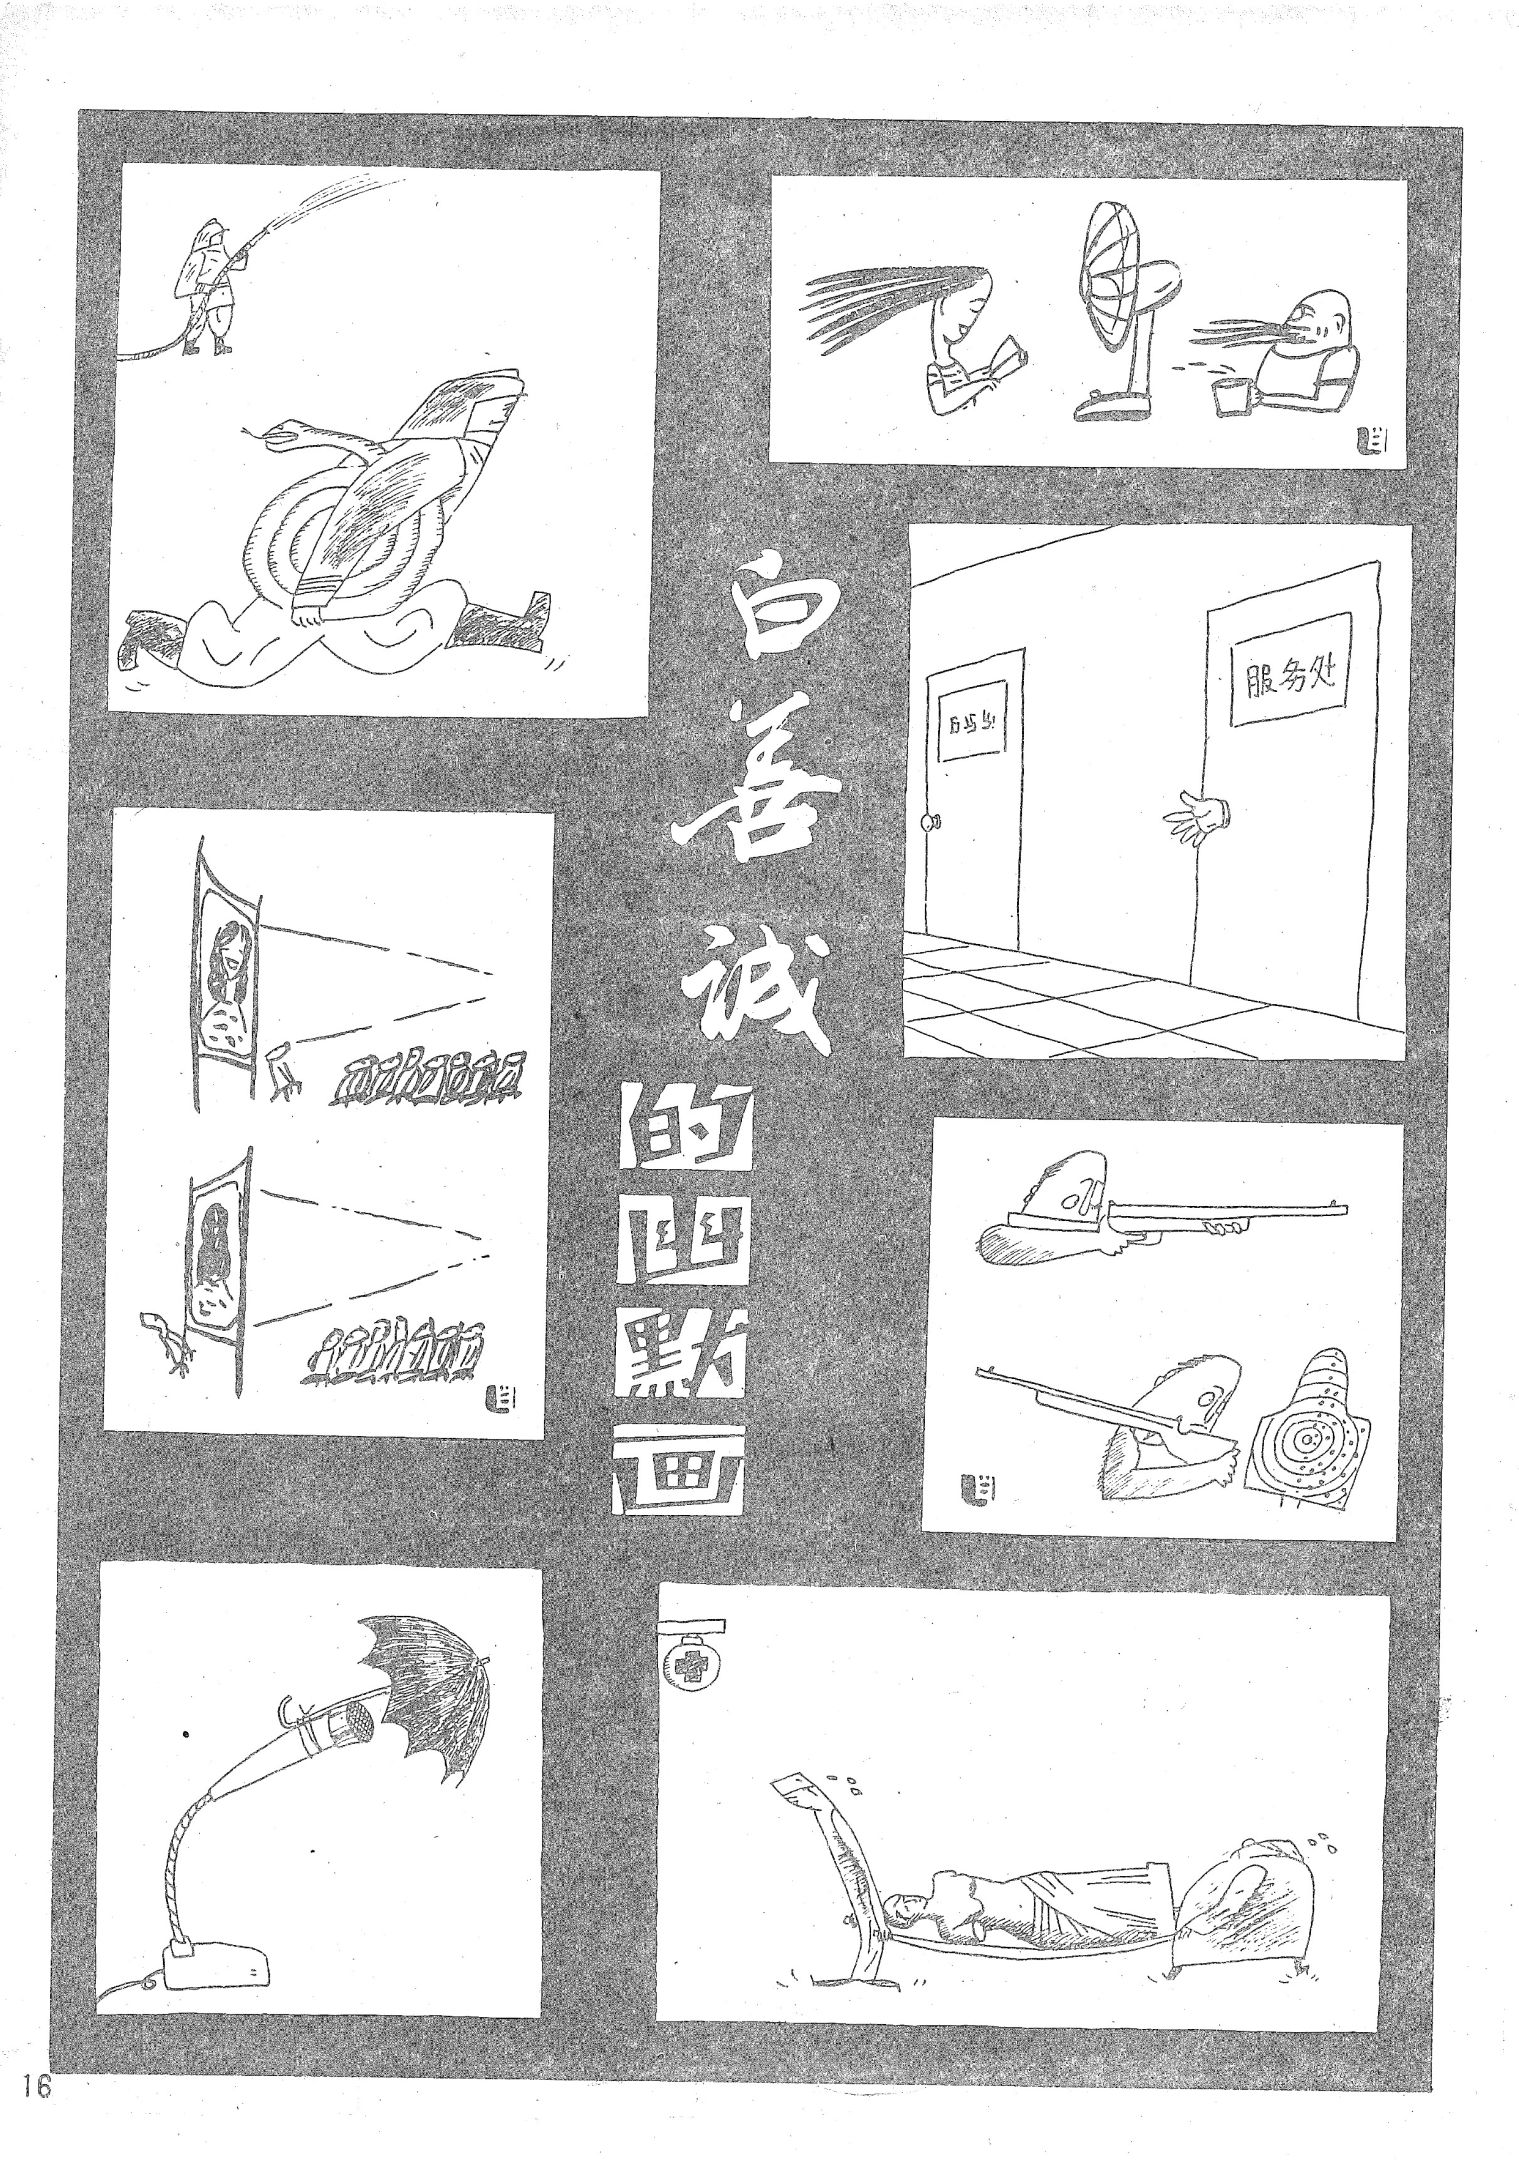 白善誠
的幽默画
服务处
16